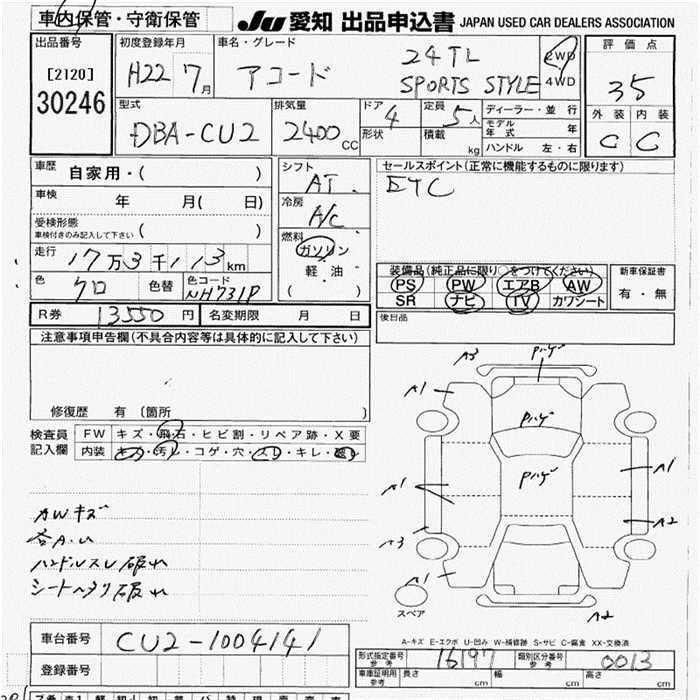 車内保管・守衛保管
JU 愛知 出品申込書 JAPAN USED CAR DEALERS ASSOCIATION
出品番号 初度登録年月 車名・グレード 評価点
[2120]
30246
H22 7月 アコード 24TL SPORTS STYLE 2WD 4WD
35
外装 内装
C C
型式 排気量 ドア 4 定員 5人 ディーラー・並行
DBA-CU2 2400CC 形状 積載 kg モデル年式 年
ハンドル 左・右
車歴 自家用・( )
シフト AT
セールスポイント(正常に機能するものに限ります)
ETC
車検 年 月( 日)
冷房 A/C
受検形態
車検付きのみ記入して下さい ( )
燃料 ガソリン 軽・油 ( )
走行 17万3千113km
色 クロ 色替 色コード NH731P
装備品(純正品に限り○をつけてください) 新車保証書
PS PW エアB AW 有・無
SR ナビ TV カワシート
R券 13550円 名変期限 月 日
後日品
注意事項申告欄(不具合内容等は具体的に記入して下さい)
修復歴 有(箇所 )
検査員記入欄 FW キズ・飛石・ヒビ割・リペア跡・X要
内装 キズ・汚れ・コゲ・穴・スレ・キレ・
AWキズ
各A.U
ハンドルスレ破れ
シートヘタリ破れ
A3 Pハゲ
A1 Pハゲ
Pハゲ
A1 A1
A3 A2
A1
A2
スペア
A-キズ E-エクボ U-凹み W-補修跡 S-サビ C-腐食 XX-交換済
車台番号 CU2-1004141
登録番号
形式指定番号 参考 16197 類別区分番号 参考 0013
車庫証明用 参考 長さ cm 幅 cm 高さ cm